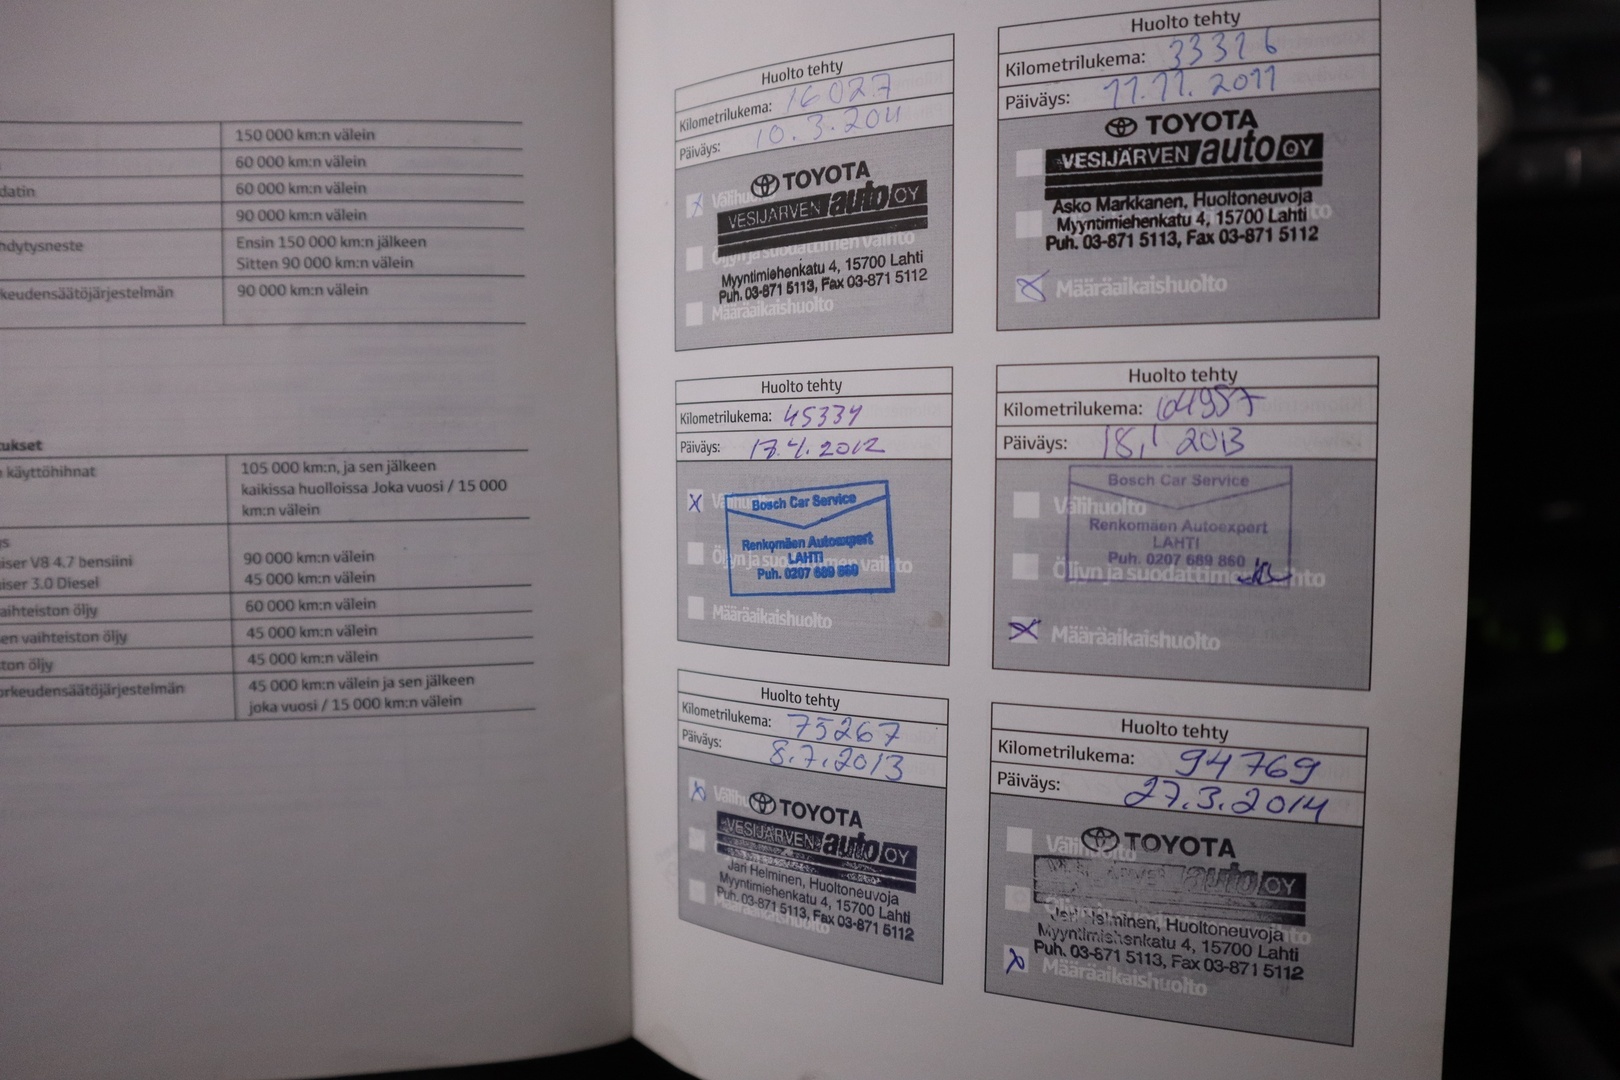 150 000 km:n välein
60 000 km:n välein
datin 60 000 km:n välein
90 000 km:n välein
hdytysneste Ensin 150 000 km:n jälkeen
Sitten 90 000 km:n välein
keudensäätöjärjestelmän 90 000 km:n välein
tukset
käyttöhihnat 105 000 km:n, ja sen jälkeen
kaikissa huolloissa Joka vuosi / 15 000
km:n välein
s
iser V8 4.7 bensiini 90 000 km:n välein
iser 3.0 Diesel 45 000 km:n välein
aihteiston öljy 60 000 km:n välein
en vaihteiston öljy 45 000 km:n välein
ton öljy 45 000 km:n välein
orkeudensäätöjärjestelmän 45 000 km:n välein ja sen jälkeen
joka vuosi / 15 000 km:n välein
Huolto tehty
Kilometrilukema: 16027
Päiväys: 10.3.2011
TOYOTA
VESIJÄRVEN auto OY
Öljyn ja suodattimen vaihto
Myyntimiehenkatu 4, 15700 Lahti
Puh. 03-871 5113, Fax 03-871 5112
Määräaikaishuolto
Huolto tehty
Kilometrilukema: 33316
Päiväys: 11.11.2011
TOYOTA
VESIJÄRVEN auto OY
Asko Markkanen, Huoltoneuvoja
Myyntimiehenkatu 4, 15700 Lahti
Puh. 03-871 5113, Fax 03-871 5112
Määräaikaishuolto
Huolto tehty
Kilometrilukema: 45339
Päiväys: 17.4.2012
Bosch Car Service
Renkomäen Autoexpert
LAHTI
Öljyn ja suodattimen vaihto
Puh. 0207 689 860
Määräaikaishuolto
Huolto tehty
Kilometrilukema:
Päiväys: 18.1 2013
Bosch Car Service
Välihuolto
Renkomäen Autoexpert
LAHTI
Puh. 0207 689 860
Öljyn ja suodattimen vaihto
Määräaikaishuolto
Huolto tehty
Kilometrilukema: 75267
Päiväys: 8.7.2013
TOYOTA
VESIJÄRVEN auto OY
Jari Helminen, Huoltoneuvoja
Myyntimiehenkatu 4, 15700 Lahti
Puh. 03-871 5113, Fax 03-871 5112
Määräaikaishuolto
Huolto tehty
Kilometrilukema: 94769
Päiväys: 27.3.2014
Välihuolto
TOYOTA
auto OY
Jari Helminen, Huoltoneuvoja
Myyntimiehenkatu 4, 15700 Lahti
Puh. 03-871 5113, Fax 03-871 5112
Määräaikaishuolto